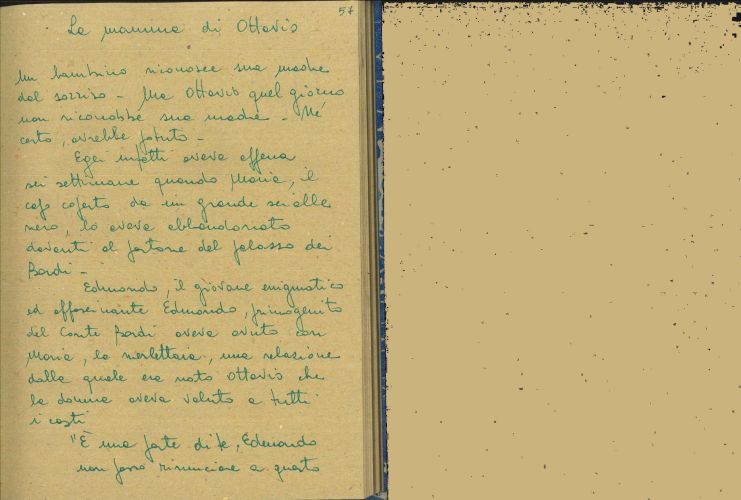 57
La mamma di Ottavio
Un bambino riconosce sua madre
dal sorriso - Ma Ottavio quel giorno
non riconobbe sua madre - Né
certo, avrebbe potuto -
Egli infatti aveva appena
sei settimane quando Maria, il
capo coperto da un grande scialle
nero, lo aveva abbandonato
davanti al portone del palazzo dei
Bardi -
Edmondo, il giovane enigmatico
ed affascinante Edmondo, primogenito
del Conte Bardi aveva avuto con
Maria, la merlettaia, una relazione
dalla quale era nato Ottavio che
la donna aveva voluto a tutti
i costi
"È una parte di te, Edmondo
non posso rinunciare a questo